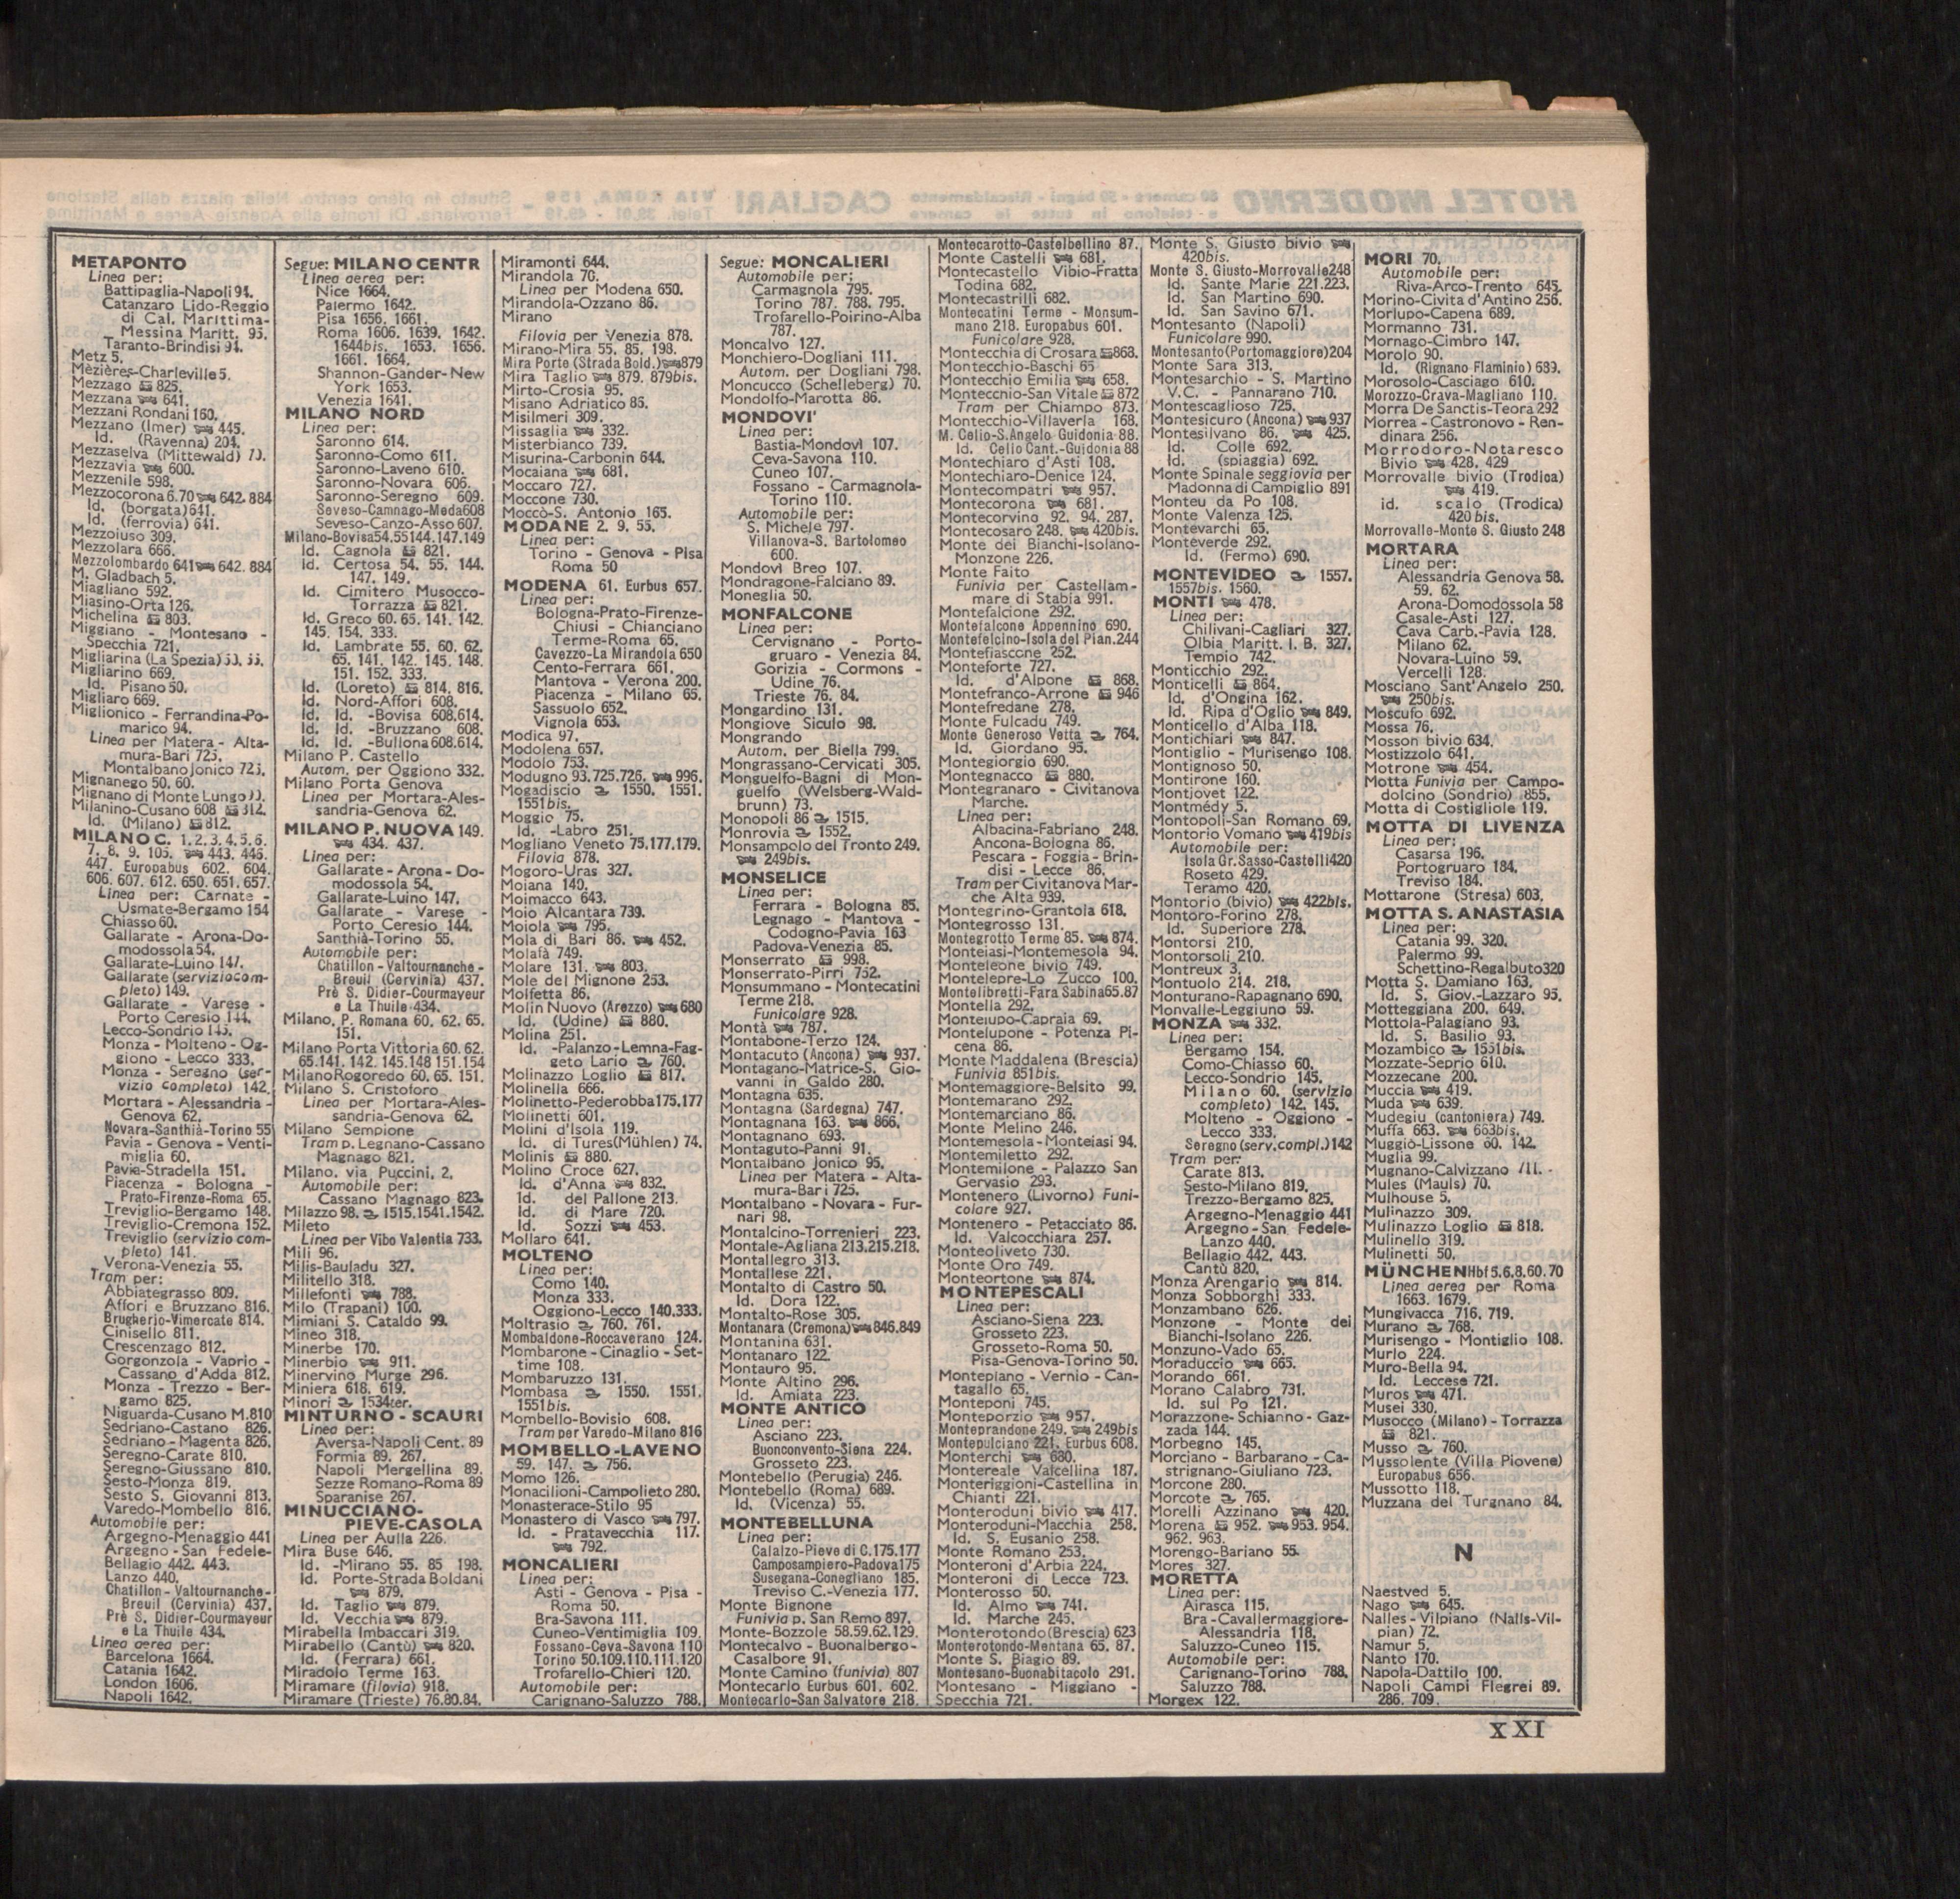 METAPONTO
Linea per:
Battipaglia-Napoli 94.
Catanzaro Lido-Reggio
di Cal. Marittima-
Messina Maritt. 95.
Taranto-Brindisi 94.
Metz 5.
Mèzières-Charleville 5.
Mezzago 825.
Mezzana 641.
Mezzani Rondani 160.
Mezzano (Imer) 445.
Id. (Ravenna) 204.
Mezzaselva (Mittewald)
Mezzavia 600.
Mezzenile 598.
Mezzocorona 6.70 642. 884
Id. (borgata) 641.
Id. (ferrovia) 641.
Mezzoiuso 309.
Mezzolara 666.
Mezzolombardo 641 642. 884
M. Gladbach 5.
Miagliano 592.
Miasino-Orta 126.
Michelina 803.
Miggiano - Montesano -
Specchia 721.
Migliarina (La Spezia)
Migliarino 669.
Id. Pisano 50.
Migliaro 669.
Miglionico - Ferrandina-Po-
marico 94.
Linea per Matera - Alta-
mura-Bari 725.
Montalbano Jonico 725.
Mignanego 50. 60.
Mignano di Monte Lungo
Milanino-Cusano 608 812.
Id. (Milano) 812.
MILANO C. 1.2.3.4.5.6.
7. 8. 9. 105. 443. 446.
447. Europabus 602. 604.
606. 607. 612. 650. 651. 657.
Linea per: Carnate -
Usmate-Bergamo 154
Chiasso 60.
Gallarate - Arona-Do-
modossola 54.
Gallarate-Luino 147.
Gallarate (servizio com-
pleto) 149.
Gallarate - Varese -
Porto Ceresio 144.
Lecco-Sondrio 145.
Monza - Molteno - Og-
giono - Lecco 333.
Monza - Seregno (ser-
vizio completo) 142.
Mortara - Alessandria -
Genova 62.
Novara-Santhià-Torino 55
Pavia - Genova - Venti-
miglia 60.
Pavia-Stradella 151.
Piacenza - Bologna -
Prato-Firenze-Roma 65.
Treviglio-Bergamo 148.
Treviglio-Cremona 152.
Treviglio (servizio com-
pleto) 141.
Verona-Venezia 55.
Tram per:
Abbiategrasso 809.
Affori e Bruzzano 816.
Brugherio-Vimercate 814.
Cinisello 811.
Crescenzago 812.
Gorgonzola - Vaprio -
Cassano d'Adda 812.
Monza - Trezzo - Ber-
gamo 825.
Niguarda-Cusano M.810
Sedriano-Castano 826.
Sedriano - Magenta 826.
Seregno-Carate 810.
Seregno-Giussano 810.
Sesto-Monza 819.
Sesto S. Giovanni 813.
Varedo-Mombello 816.
Automobile per:
Argegno-Menaggio 441
Argegno - San Fedele-
Bellagio 442. 443.
Lanzo 440.
Chatillon - Valtournanche-
Breuil (Cervinia) 437.
Prè S. Didier-Courmayeur
e La Thuile 434.
Linea aerea per:
Barcelona 1664.
Catania 1642.
London 1606.
Napoli 1642.
Segue: MILANO CENTR
Linea aerea per:
Nice 1664.
Palermo 1642.
Pisa 1656. 1661.
Roma 1606. 1639. 1642.
1644bis. 1653. 1656.
1661. 1664.
Shannon-Gander-New
York 1653.
Venezia 1641.
MILANO NORD
Linea per:
Saronno 614.
Saronno-Como 611.
Saronno-Laveno 610.
Saronno-Novara 606.
Saronno-Seregno 609.
Seveso-Camnago-Meda608
Seveso-Canzo-Asso 607.
Milano-Bovisa54.55144.147.149
Id. Cagnola 821.
Id. Certosa 54. 55. 144.
147. 149.
Id. Cimitero Musocco-
Torrazza 821.
Id. Greco 60. 65. 141. 142.
145. 154. 333.
Id. Lambrate 55. 60. 62.
65. 141. 142. 145. 148.
151. 152. 333.
Id. (Loreto) 814. 816.
Id. Nord-Affori 608.
Id. Id. -Bovisa 608.614.
Id. Id. -Bruzzano 608.
Id. Id. -Bullona 608.614.
Milano P. Castello
Autom. per Oggiono 332.
Milano Porta Genova
Linea per Mortara-Ales-
sandria-Genova 62.
MILANO P. NUOVA 149.
434. 437.
Linea per:
Gallarate - Arona - Do-
modossola 54.
Gallarate-Luino 147.
Gallarate - Varese -
Porto Ceresio 144.
Santhià-Torino 55.
Automobile per:
Chatillon - Valtournanche -
Breuil (Cervinia) 437.
Prè S. Didier-Courmayeur
e La Thuile 434.
Milano, P. Romana 60. 62. 65.
151.
Milano Porta Vittoria 60. 62.
65.141. 142. 145.148 151.154
Milano Rogoredo 60. 65. 151.
Milano S. Cristoforo
Linea per Mortara-Ales-
sandria-Genova 62.
Milano Sempione
Tram p. Legnano-Cassano
Magnago 821.
Milano, via Puccini, 2.
Automobile per:
Cassano Magnago 823.
Milazzo 98. 1515.1541.1542.
Mileto
Linea per Vibo Valentia 733.
Mili 96.
Milis-Bauladu 327.
Militello 318.
Millefonti 788.
Milo (Trapani) 100.
Mimiani S. Cataldo 99.
Mineo 318.
Minerbe 170.
Minerbio 911.
Minervino Murge 296.
Miniera 618. 619.
Minori 1534ter.
MINTURNO - SCAURI
Linea per:
Aversa-Napoli Cent. 89
Formia 89. 267.
Napoli Mergellina 89.
Sezze Romano-Roma 89
Sparanise 267.
MINUCCIANO-
PIEVE-CASOLA
Linea per Aulla 226.
Mira Buse 646.
Id. -Mirano 55. 85 198.
Id. Porte-Strada Boldani
879.
Id. Taglio 879.
Id. Vecchia 879.
Mirabella Imbaccari 319.
Mirabello (Cantù) 820.
Id. (Ferrara) 661.
Miradolo Terme 163.
Miramare (filovia) 918.
Miramare (Trieste) 76.80.84.
Miramonti 644.
Mirandola 70.
Linea per Modena 650.
Mirandola-Ozzano 86.
Mirano
Filovia per Venezia 878.
Mirano-Mira 55. 85. 198.
Mira Porte (Strada Bold.) 879
Mira Taglio 879. 879bis.
Mirto-Crosia 95.
Misano Adriatico 86.
Misilmeri 309.
Missaglia 332.
Misterbianco 739.
Misurina-Carbonin 644.
Mocaiana 681.
Moccaro 727.
Moccone 730.
Moccò-S. Antonio 165.
MODANE 2. 9. 55.
Linea per:
Torino - Genova - Pisa
Roma 50
MODENA 61. Eurbus 657.
Linea per:
Bologna-Prato-Firenze-
Chiusi - Chianciano
Terme-Roma 65.
Cavezzo-La Mirandola 650
Cento-Ferrara 661.
Mantova - Verona 200.
Piacenza - Milano 65.
Sassuolo 652.
Vignola 653.
Modica 97.
Modolena 657.
Modolo 753.
Modugno 93.725.726. 996.
Mogadiscio 1550. 1551.
1551bis.
Moggio 75.
Id. -Labro 251.
Mogliano Veneto 75.177.179.
Filovia 878.
Mogoro-Uras 327.
Moiana 140.
Moimacco 643.
Moio Alcantara 739.
Moiola 795.
Mola di Bari 86. 452.
Molafà 749.
Molare 131. 803.
Mole del Mignone 253.
Molfetta 86.
Molin Nuovo (Arezzo) 680
Id. (Udine) 880.
Molina 251.
Id. -Palanzo-Lemna-Fag-
geto Lario 760.
Molinazzo Loglio 817.
Molinella 666.
Molinetto-Pederobba175.177
Molinetti 601.
Molini d'Isola 119.
Id. di Tures(Mühlen) 74.
Molinis 880.
Molino Croce 627.
Id. d'Anna 832.
Id. del Pallone 213.
Id. di Mare 720.
Id. Sozzi 453.
Mollaro 641.
MOLTENO
Linea per:
Como 140.
Monza 333.
Oggiono-Lecco 140.333.
Moltrasio 760. 761.
Mombaldone-Roccaverano 124.
Mombarone - Cinaglio - Set-
time 108.
Mombaruzzo 131.
Mombasa 1550. 1551.
1551bis.
Mombello-Bovisio 608.
Tram per Varedo-Milano 816
MOMBELLO-LAVENO
59. 147. 756.
Momo 126.
Monacilioni-Campolieto 280.
Monasterace-Stilo 95
Monastero di Vasco 797.
Id. - Pratavecchia 117.
792.
MONCALIERI
Linea per:
Asti - Genova - Pisa -
Roma 50.
Bra-Savona 111.
Cuneo-Ventimiglia 109.
Fossano-Ceva-Savona 110
Torino 50.109.110.111.120
Trofarello-Chieri 120.
Automobile per:
Carignano-Saluzzo 788.
Segue: MONCALIERI
Automobile per:
Carmagnola 795.
Torino 787. 788. 795.
Trofarello-Poirino-Alba
787.
Moncalvo 127.
Monchiero-Dogliani 111.
Autom. per Dogliani 798.
Moncucco (Schelleberg) 70.
Mondolfo-Marotta 86.
MONDOVI'
Linea per:
Bastia-Mondovì 107.
Ceva-Savona 110.
Cuneo 107.
Fossano - Carmagnola-
Torino 110.
Automobile per:
S. Michele 797.
Villanova-S. Bartolomeo
600.
Mondovì Breo 107.
Mondragone-Falciano 89.
Moneglia 50.
MONFALCONE
Linea per:
Cervignano - Porto-
gruaro - Venezia 84.
Gorizia - Cormons -
Udine 76.
Trieste 76. 84.
Mongardino 131.
Mongiove Siculo 98.
Mongrando
Autom. per Biella 799.
Mongrassano-Cervicati 305.
Monguelfo-Bagni di Mon-
guelfo (Welsberg-Wald-
brunn) 73.
Monopoli 86 1515.
Monrovia 1552.
Monsampolo del Tronto 249.
249bis.
MONSELICE
Linea per:
Ferrara - Bologna 85.
Legnago - Mantova -
Codogno-Pavia 163
Padova-Venezia 85.
Monserrato 998.
Monserrato-Pirri 752.
Monsummano - Montecatini
Terme 218.
Funicolare 928.
Montà 787.
Montabone-Terzo 124.
Montacuto (Ancona) 937.
Montagano-Matrice-S. Gio-
vanni in Galdo 280.
Montagna 635.
Montagna (Sardegna) 747.
Montagnana 163. 866.
Montagnano 693.
Montaguto-Panni 91.
Montalbano Jonico 95.
Linea per Matera - Alta-
mura-Bari 725.
Montalbano - Novara - Fur-
nari 98.
Montalcino-Torrenieri 223.
Montale-Agliana 213.215.218.
Montallegro 313.
Montallese 221.
Montalto di Castro 50.
Id. Dora 122.
Montalto-Rose 305.
Montanara (Cremona) 846.849
Montanina 631.
Montanaro 122.
Montauro 95.
Monte Altino 296.
Id. Amiata 223.
MONTE ANTICO
Linea per:
Asciano 223.
Buonconvento-Siena 224.
Grosseto 223.
Montebello (Perugia) 246.
Montebello (Roma) 689.
Id. (Vicenza) 55.
MONTEBELLUNA
Linea per:
Calalzo-Pieve di C.175.177
Camposampiero-Padova175
Susegana-Conegliano 185.
Treviso C.-Venezia 177.
Monte Bignone
Funivia p. San Remo 897.
Monte-Bozzole 58.59.62.129.
Montecalvo - Buonalbergo-
Casalbore 91.
Monte Camino (funivia) 807
Montecarlo Eurbus 601. 602.
Montecarlo-San Salvatore 218.
Montecarotto-Castelbellino 87.
Monte Castelli 681.
Montecastello Vibio-Fratta
Todina 682.
Montecastrilli 682.
Montecatini Terme - Monsum-
mano 218. Europabus 601.
Funicolare 928.
Montecchia di Crosara 868.
Montecchio-Baschi 65
Montecchio Emilia 658.
Montecchio-San Vitale 872
Tram per Chiampo 873.
Montecchio-Villaverla 168.
M. Celio-S.Angelo Guidonia 88.
Id. Celio Cant.-Guidonia 88
Montechiaro d'Asti 108.
Montechiaro-Denice 124.
Montecompatri 957.
Montecorona 681.
Montecorvino 92. 94. 287.
Montecosaro 248. 420bis.
Monte dei Bianchi-Isolano-
Monzone 226.
Monte Faito
Funivia per Castellam-
mare di Stabia 991.
Montefalcione 292.
Montefalcone Appennino 690.
Montefelcino-Isola del Pian.244
Montefiascone 252.
Monteforte 727.
Id. d'Alpone 868.
Montefranco-Arrone 946
Montefredane 278.
Monte Fulcadu 749.
Monte Generoso Vetta 764.
Id. Giordano 95.
Montegiorgio 690.
Montegnacco 880.
Montegranaro - Civitanova
Marche.
Linea per:
Albacina-Fabriano 248.
Ancona-Bologna 86.
Pescara - Foggia - Brin-
disi - Lecce 86.
Tram per Civitanova Mar-
che Alta 939.
Montegrino-Grantola 618.
Montegrosso 131.
Montegrotto Terme 85. 874.
Monteiasi-Montemesola 94.
Monteleone bivio 749.
Montelepre-Lo Zucco 100.
Montelibretti-Fara Sabina65.87
Montella 292.
Montelupo-Capraia 69.
Montelupone - Potenza Pi-
cena 86.
Monte Maddalena (Brescia)
Funivia 851bis.
Montemaggiore-Belsito 99.
Montemarano 292.
Montemarciano 86.
Monte Melino 246.
Montemesola - Monteiasi 94.
Montemiletto 292.
Montemilone - Palazzo San
Gervasio 293.
Montenero (Livorno) Funi-
colare 927.
Montenero - Petacciato 86.
Id. Valcocchiara 257.
Monteoliveto 730.
Monte Oro 749.
Monteortone 874.
MONTEPESCALI
Linea per:
Asciano-Siena 223.
Grosseto 223.
Grosseto-Roma 50.
Pisa-Genova-Torino 50.
Montepiano - Vernio - Can-
tagallo 65.
Monteponi 745.
Monteporzio 957.
Monteprandone 249. 249bis
Montepulciano 221. Eurbus 608.
Monterchi 680.
Montereale Valcellina 187.
Monteriggioni-Castellina in
Chianti 221.
Monteroduni bivio 417.
Monteroduni-Macchia 258.
Id. S. Eusanio 258.
Monte Romano 253.
Monteroni d'Arbia 224.
Monteroni di Lecce 723.
Monterosso 50.
Id. Almo 741.
Id. Marche 245.
Monterotondo(Brescia) 623
Monterotondo-Mentana 65. 87.
Monte S. Biagio 89.
Montesano-Buonabitacolo 291.
Montesano - Miggiano -
Specchia 721.
Monte S. Giusto bivio
420bis.
Monte S. Giusto-Morrovalle248
Id. Sante Marie 221.223.
Id. San Martino 690.
Id. San Savino 671.
Montesanto (Napoli)
Funicolare 990.
Montesanto(Portomaggiore)204
Monte Sara 313.
Montesarchio - S. Martino
V.C. - Pannarano 710.
Montescaglioso 725.
Montesicuro (Ancona) 937
Montesilvano 86. 425.
Id. Colle 692.
Id. (spiaggia) 692.
Monte Spinale seggiovia per
Madonna di Campiglio 891
Monteu da Po 108.
Monte Valenza 125.
Montevarchi 65.
Monteverde 292.
Id. (Fermo) 690.
MONTEVIDEO 1557.
1557bis. 1560.
MONTI 478.
Linea per:
Chilivani-Cagliari 327.
Olbia Maritt. I. B. 327.
Tempio 742.
Monticchio 292.
Monticelli 864.
Id. d'Ongina 162.
Id. Ripa d'Oglio 849.
Monticello d'Alba 118.
Montichiari 847.
Montiglio - Murisengo 108.
Montignoso 50.
Montirone 160.
Montjovet 122.
Montmédy 5.
Montopoli-San Romano 69.
Montorio Vomano 419bis
Automobile per:
Isola Gr.Sasso-Castelli420
Roseto 429.
Teramo 420.
Montorio (bivio) 422bis.
Montoro-Forino 278.
Id. Superiore 278.
Montorsi 210.
Montorsoli 210.
Montreux 3.
Montuolo 214. 218.
Monturano-Rapagnano 690.
Monvalle-Leggiuno 59.
MONZA 332.
Linea per:
Bergamo 154.
Como-Chiasso 60.
Lecco-Sondrio 145.
Milano 60. (servizio
completo) 142. 145.
Molteno - Oggiono -
Lecco 333.
Seregno (serv.compl.)142
Tram per:
Carate 813.
Sesto-Milano 819.
Trezzo-Bergamo 825.
Argegno-Menaggio 441
Argegno - San Fedele-
Lanzo 440.
Bellagio 442. 443.
Cantù 820.
Monza Arengario 814.
Monza Sobborghi 333.
Monzambano 626.
Monzone - Monte dei
Bianchi-Isolano 226.
Monzuno-Vado 65.
Moraduccio 665.
Morando 661.
Morano Calabro 731.
Id. sul Po 121.
Morazzone-Schianno - Gaz-
zada 144.
Morbegno 145.
Morciano - Barbarano - Ca-
strignano-Giuliano 723.
Morcone 280.
Morcote 765.
Morelli Azzinano 420.
Morena 952. 953. 954.
962. 963.
Morengo-Bariano 55.
Mores 327.
MORETTA
Linea per:
Airasca 115.
Bra - Cavallermaggiore-
Alessandria 118.
Saluzzo-Cuneo 115.
Automobile per:
Carignano-Torino 788.
Saluzzo 788.
Morgex 122.
MORI 70.
Automobile per:
Riva-Arco-Trento 645.
Morino-Civita d'Antino 256.
Morlupo-Capena 689.
Mormanno 731.
Mornago-Cimbro 147.
Morolo 90.
Id. (Rignano Flaminio) 689.
Morosolo-Casciago 610.
Morozzo-Crava-Magliano 110.
Morra De Sanctis-Teora 292
Morrea - Castronovo - Ren-
dinara 256.
Morrodoro-Notaresco
Bivio 428. 429
Morrovalle bivio (Trodica)
419.
id. scalo (Trodica)
420bis.
Morrovalle-Monte S. Giusto 248
MORTARA
Linea per:
Alessandria Genova 58.
59. 62.
Arona-Domodossola 58
Casale-Asti 127.
Cava Carb.-Pavia 128.
Milano 62.
Novara-Luino 59.
Vercelli 128.
Mosciano Sant'Angelo 250.
250bis.
Moscufo 692.
Mossa 76.
Mosson bivio 634.
Mostizzolo 641.
Motrone 454.
Motta Funivia per Campo-
dolcino (Sondrio) 855.
Motta di Costigliole 119.
MOTTA DI LIVENZA
Linea per:
Casarsa 196.
Portogruaro 184.
Treviso 184.
Mottarone (Stresa) 603.
MOTTA S. ANASTASIA
Linea per:
Catania 99. 320.
Palermo 99.
Schettino-Regalbuto320
Motta S. Damiano 163.
Id. S. Giov.-Lazzaro 95.
Motteggiana 200. 649.
Mottola-Palagiano 93.
Id. S. Basilio 93.
Mozambico 1551bis.
Mozzate-Seprio 610.
Mozzecane 200.
Muccia 419.
Muda 639.
Mudegiu (cantoniera) 749.
Muffa 663. 663bis.
Muggiò-Lissone 60. 142.
Muglia 99.
Mugnano-Calvizzano 711.
Mules (Mauls) 70.
Mulhouse 5.
Mulinazzo 309.
Mulinazzo Loglio 818.
Mulinello 319.
Mulinetti 50.
MÜNCHEN Hbf 5.6.8.60.70
Linea aerea per Roma
1663. 1679.
Mungivacca 716. 719.
Murano 768.
Murisengo - Montiglio 108.
Murlo 224.
Muro-Bella 94.
Id. Leccese 721.
Muros 471.
Musei 330.
Musocco (Milano) - Torrazza
821.
Musso 760.
Mussolente (Villa Piovene)
Europabus 656.
Mussotto 118.
Muzzana del Turgnano 84.
N
Naestved 5.
Nago 645.
Nalles - Vilpiano (Nalls-Vil-
pian) 72.
Namur 5.
Nanto 170.
Napola-Dattilo 100.
Napoli Campi Flegrei 89.
286. 709.
XXI